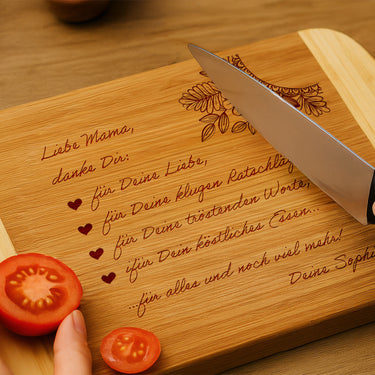 Liebe Mama,
danke Dir:
für Deine Liebe,
für Deine klugen Ratschläg
für Deine tröstenden Worte,
ifür Dein köstliches Essen...
...für alles und noch viel mehr!
Deine Sophi